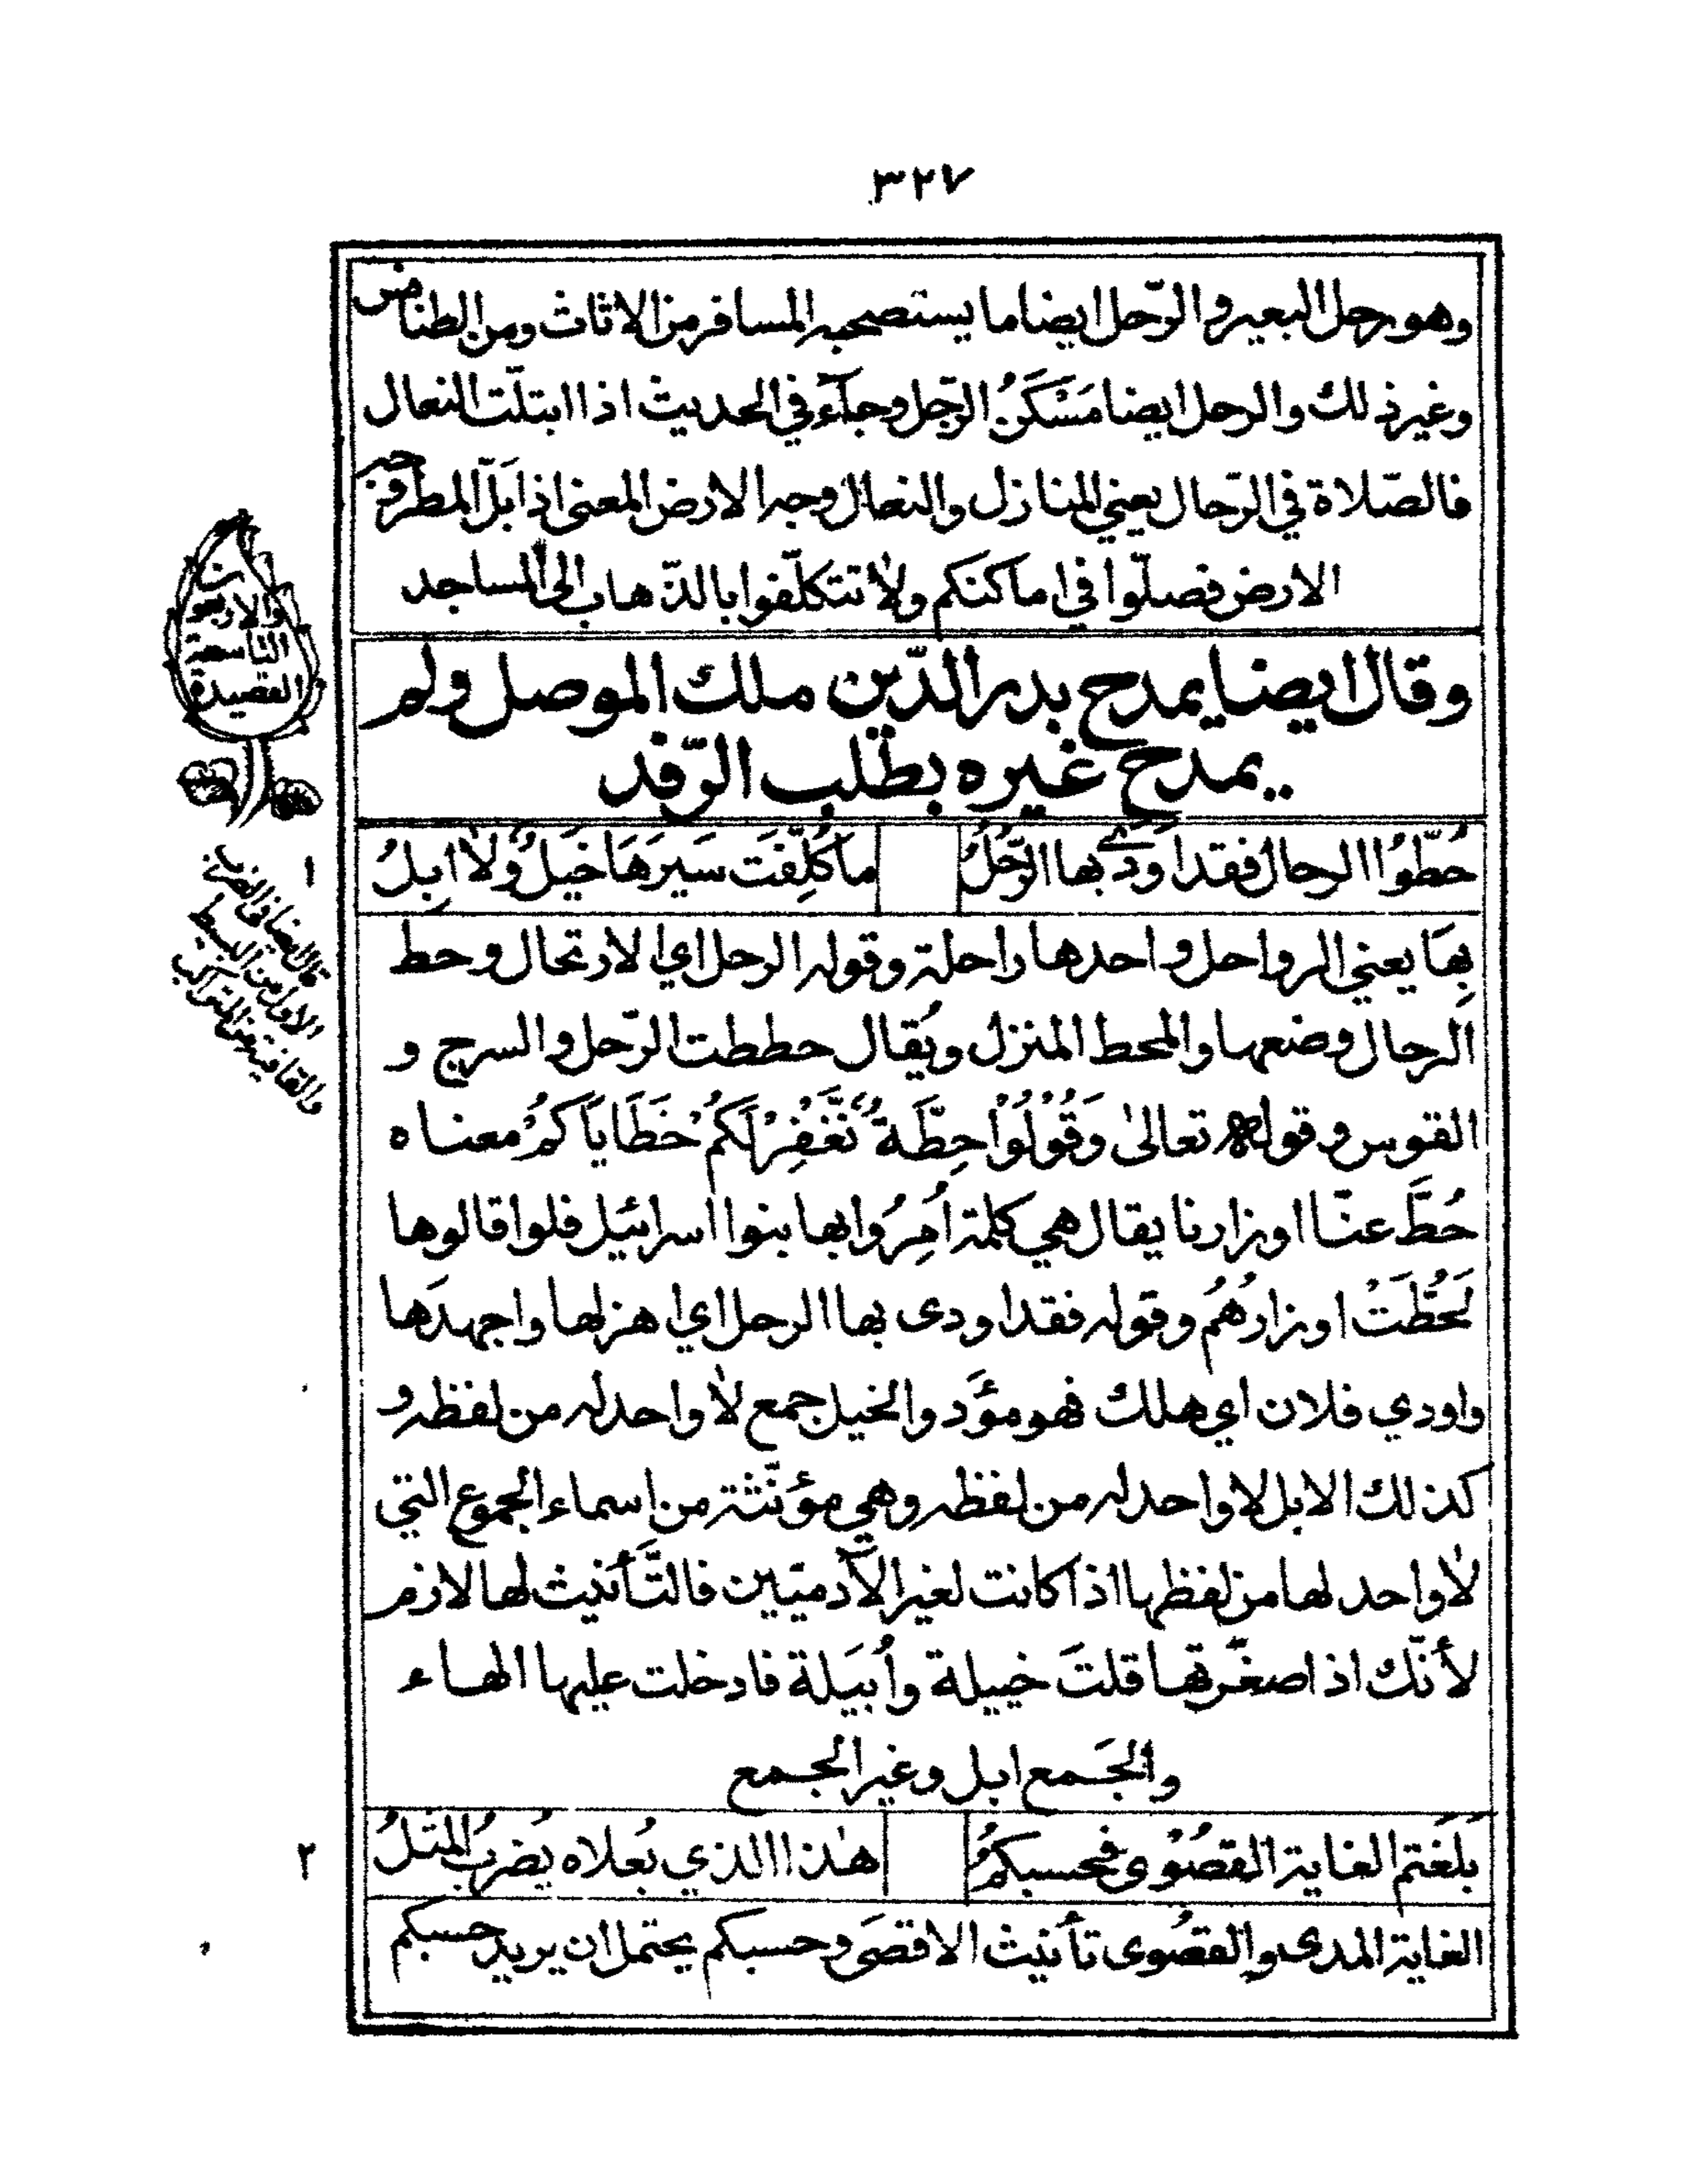 ٣٢٧
وهو رحل البعير والرّحل ايضا ما يستصحبه المسافر من الاثاث ومن الطنافس
وغير ذلك والرحل ايضا مَسْكَنُ الرّجل وجآء في الحديث اذا ابتلّت النعال
فالصّلاة في الرّحال يعني المنازل والنعال وجه الارض المعنى اذا بَلّ المطر وجه
الارض فصلّوا في اماكنكم ولا تتكلّفوا بالذّهاب الى المساجد
وقال ايضا يمدح بدر الدّين ملك الموصل ولم
يمدح غيره بطلب الرّفد
القصيدة
التاسعة
والاربعون
حُطّوُا الرحالُ فقد اَوَدٰي بها الرَّحُلُ ما كُلِّفَت سَيرَهَا خَيلُ وُلا ابِلُ
١
قال ايضا في الضرب
الاول من البسيط
والقافية من المتراكب
بِهَا يعني الرواحل واحدها راحلة وقوله الرحل اي الارتحال وحط
الرحال وضعها والمحط المنزل ويُقال حططت الرّحل والسرج و
القوس وقوله تعالىٰ وَقُوْلُوْا حِطَّةٌ نَّغْفِرْ لَكُمْ خَطَايَاكُمْ معناه
حُطَّ عنّا اوزارنا يقال هي كلمة اُمِرُوا بها بنوا اسرائيل فلوا قالوها
لَحُطَّتْ اوزارُهُم وقوله فقد اودى بها الرحل اي اهزلها واجهدَها
واودي فلان اي هلك فهو مؤَد والخيل جمع لا واحد له من لفظه و
كذلك الابل لا واحد له من لفظه وهي مؤنّثة من اسماء الجموع التي
لا واحد لها من لفظها اذا كانت لغير الآدميّين فالتَّأنيث لها لازم
لأنّك اذا صغّرتها قلتَ خييلة واُبيَلة فادخلت عليها الهاء
والجَمع ابل وغير الجمع
بَلَغتم الغاية القُصْوى فحسبكمُ هٰذا الذي بعُلاه يُضربُ المثلُ
٢
الغاية المدى والقصُوى تأنيث الاقصَى وحسبكم يحتمل ان يريد حسبكم